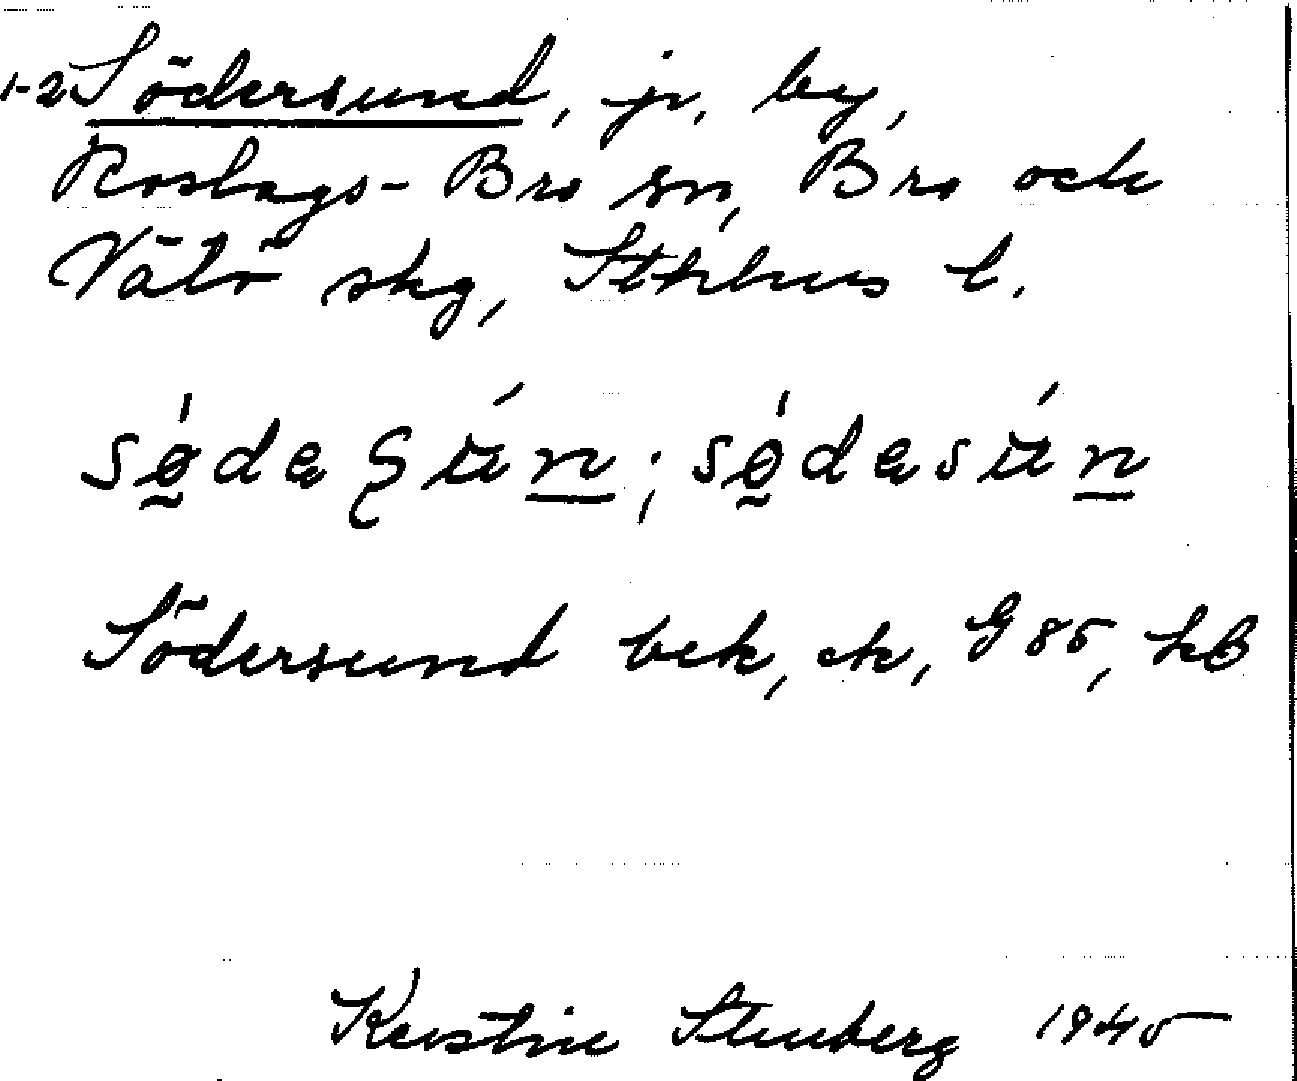 1-2 Södersund, jr, by,
Roslags-Bro sn, Bro och
Vätö skg, Sthlms l.
södersund bek, ek, G 85, hB
Kerstin Stenberg 1945